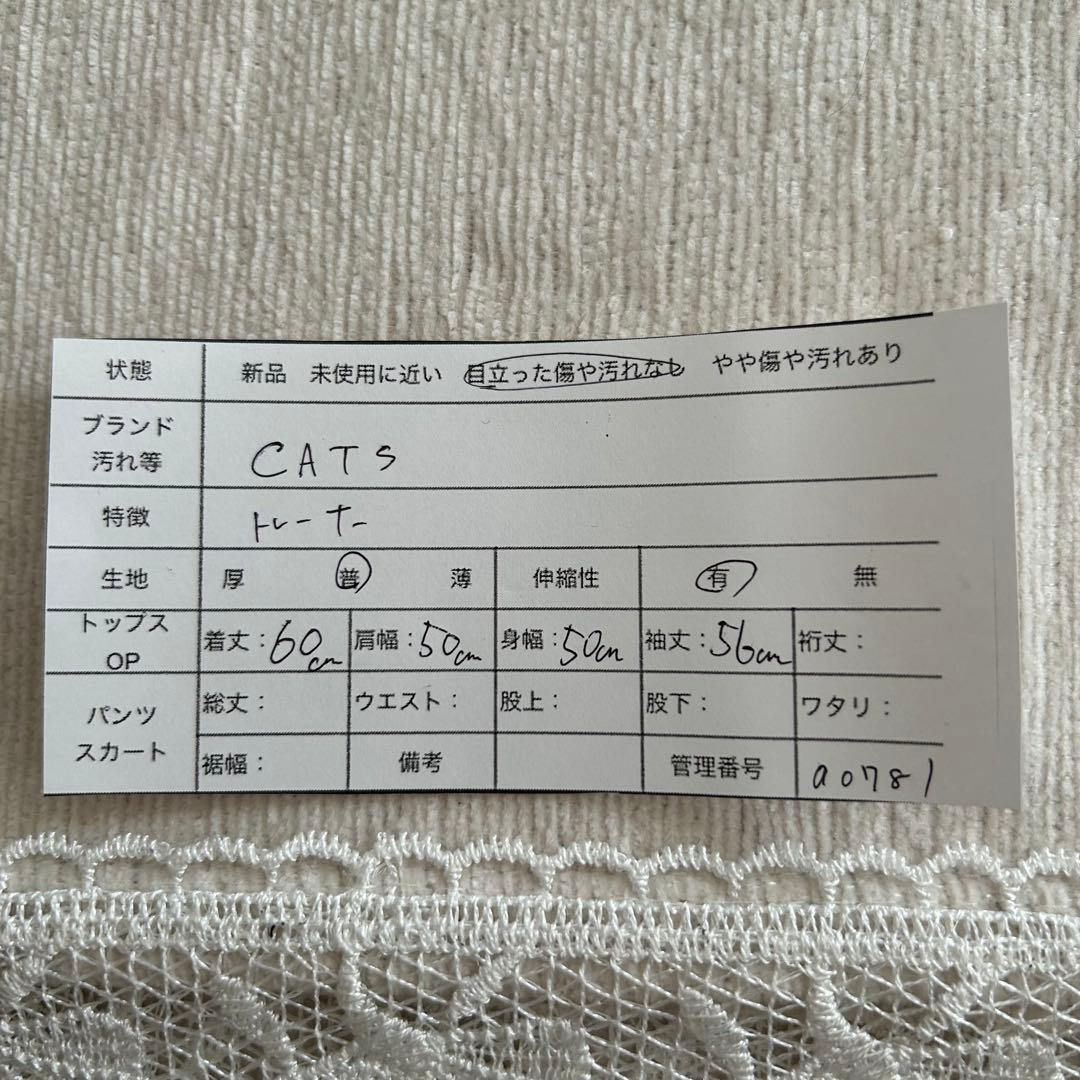 状態 新品 未使用に近い 目立った傷や汚れなし やや傷や汚れあり
ブランド
汚れ等 CATS
特徴 トレーナー
生地 厚 普 薄 伸縮性 有 無
トップス
OP 着丈：60cm 肩幅：50cm 身幅：50cm 袖丈：56cm 裄丈：
パンツ
スカート 総丈： ウエスト： 股上： 股下： ワタリ：
裾幅： 備考 管理番号 a0781